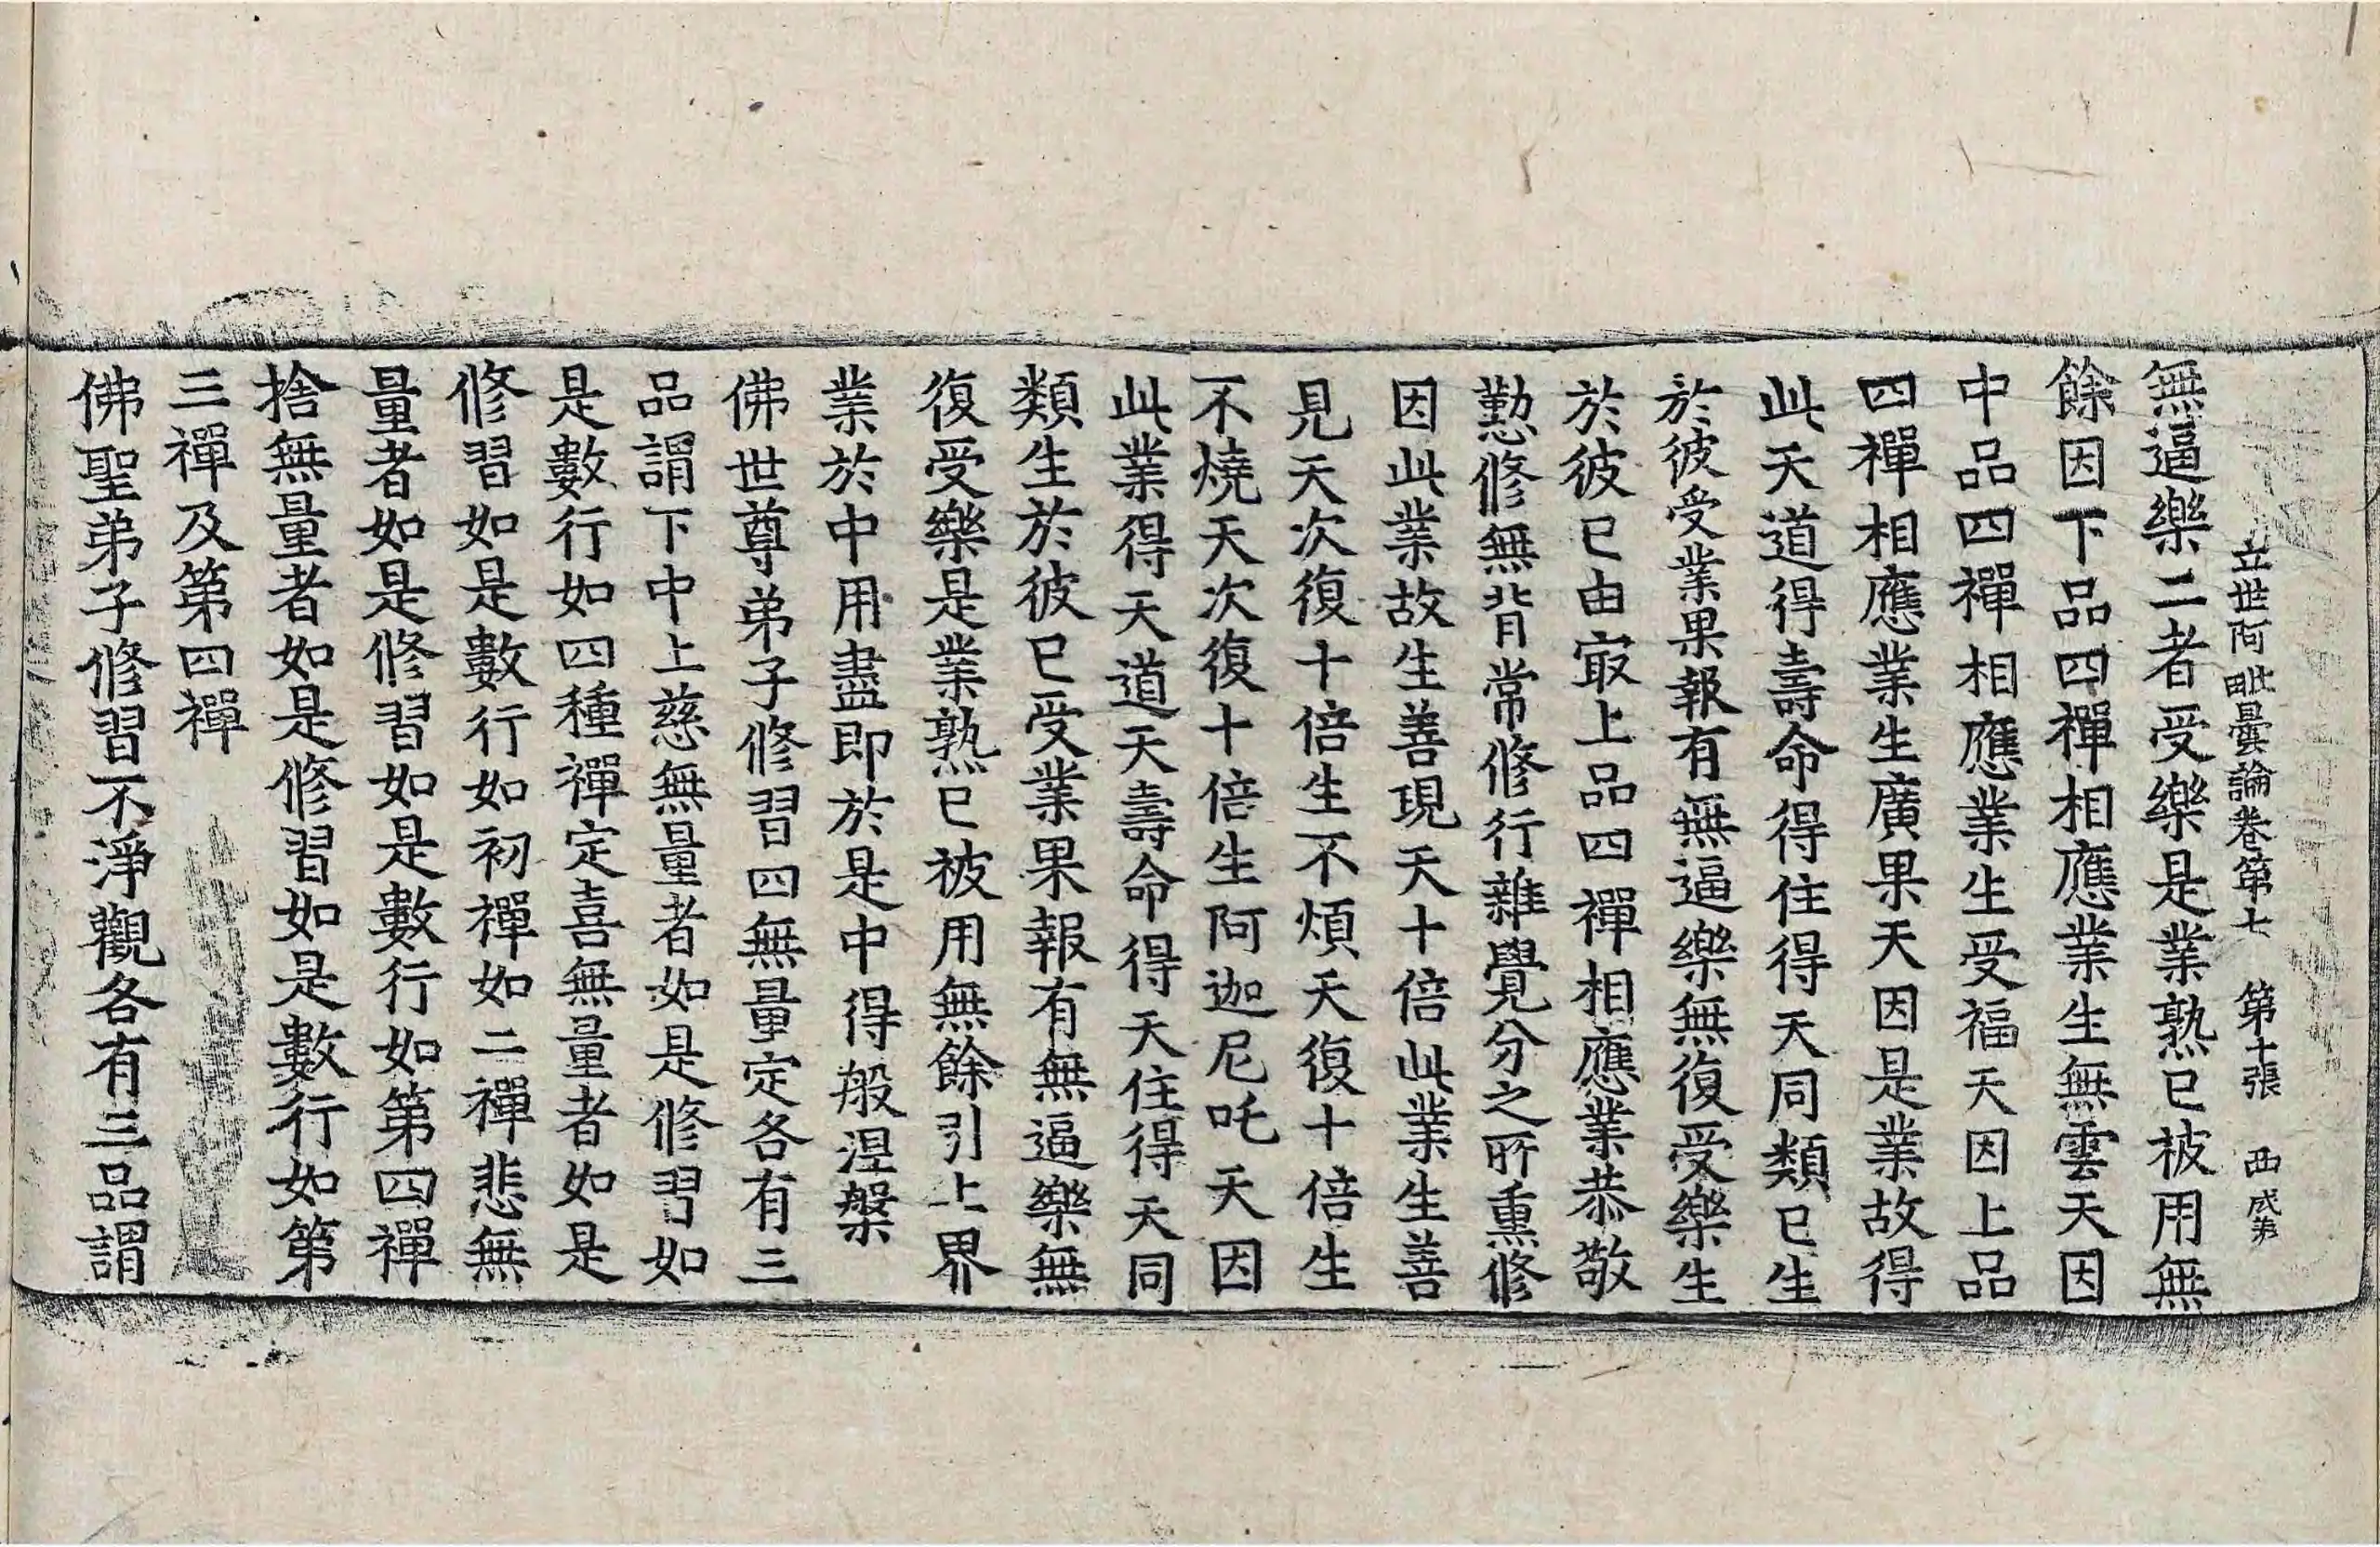 立世阿毗曇論卷第七　第十張　西　成弟
無逼樂二者受樂是業熟已被用無
餘因下品四禪相應業生無雲天因
中品四禪相應業生受福天因上品
四禪相應業生廣果天因是業故得
此天道得壽命得住得天同類已生
於彼受業果報有無逼樂無復受樂生
於彼已由㝡上品四禪相應業恭敬
懃修無背常修行雜覺分之所熏修
因此業故生善現天十倍此業生善
見天次復十倍生不煩天復十倍生
不燒天次復十倍生阿迦尼吒天因
此業得天道天壽命得天住得天同
類生於彼已受業果報有無逼樂無
復受樂是業熟已被用無餘引上界
業於中用盡即於是中得般涅槃
佛世尊弟子修習四無量定各有三
品謂下中上慈無量者如是修習如
是數行如四種禪定喜無量者如是
修習如是數行如初禪如二禪悲無
量者如是修習如是數行如第四禪
捨無量者如是修習如是數行如第
三禪及第四禪
佛聖弟子修習不淨觀各有三品謂